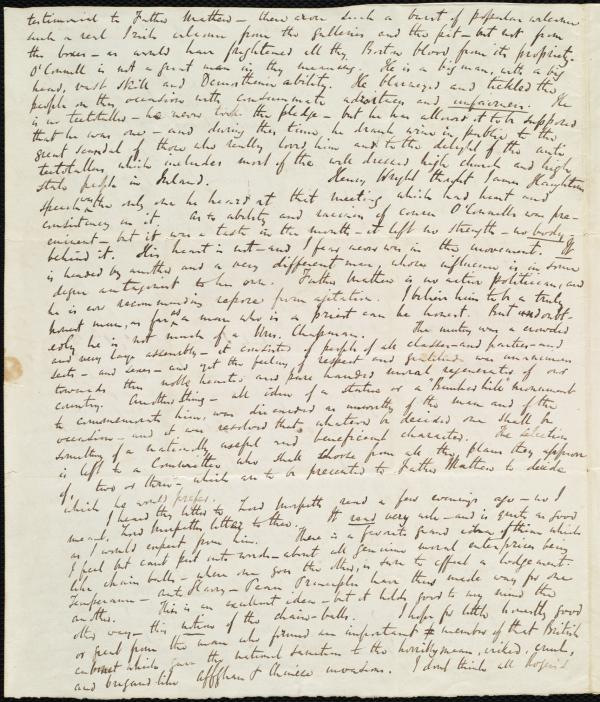 testimonial to Father Mathew - there arose such a burst of popular welcome
such a real Irish welcome from the galleries and the pit - but not from
the boxes - as would have frightened all thy Boston blood from its propriety.
O'Connell is not a great man in thy meaning. He is a big man, with a big
head, vast skill and Demosthenic ability. He blarneyed and tickled the
people on this occasion with consummate adroitness and unfairness. He
is no teetotaller - he never took the pledge - but he has allowed it to be supposed
that he was one - and during this time he drank wine in public to the
great scandal of those who really loved him and to the delight of the anti
teetotallers which includes most of the well dressed high church and high
state people in Ireland. Henry Wright thought James Haughton's
speech was the only one he heard at that meeting which had heart and
consistency in it. As to ability and raciness of course O'Connell's was pre-
eminent - but it was a taste in the mouth - it left no strength - no body
behind it. His heart is not - and I fear never was in the movement. It
is headed by another and a very different man, whose influence is in some
degree antagonist to his own. Father Mathew is no active politician, and
he is ever recommending repose from agitation. I believe him to be a truly
honest man, as far as a man who is a priest can be honest. But undoubt-
edly he is not much of a Mrs. Chapman. The meeting was a crowded
and very large assembly - it consisted of people of all classes - and parties - and
sects - and sexes - and yet the feeling of respect and gratitude was unanimous
towards this noble hearted and pure handed moral regenerator of our
country. Another thing - all idea of a statue or a "Bunker hill" monument
to commemorate him, was discarded as unworthy of the man and of the
occasion - and it was resolved that whatever be decided one shall be
something of a nationally useful and beneficent character. The selection
is left to a Committee, who shall choose from all the plans they approve
of, two or three - which are to be presented to Father Mathew to decide
which he would prefer.
I heard thy letter to Lord Morpeth read a few evenings ago - no I
meant, Lord Morpeth's letter to thee. It read very well - and is quite as good
as I would expect from him. There is a favorite grand idea of thine which
I feel but can't put into words - about all genuine moral enterprises being
like chain balls - where one goes the other is sure to effect a lodgement.
Temperance - anti Slavery - Peace Principles have thus made way for one
another. This is an excellent idea - but it holds good to my mind the
other way - this notion of the chain-balls. I hope for little honestly good
or great from the man who formed an important member of that British
cabinet which gave the national sanction to the horribly mean, wicked, cruel,
and brigand like Affghan & Chinese invasions. I don't think all Rogers's